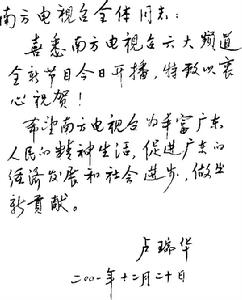 南方电视台全体同志：
喜悉南方电视台六大频道
全新节目今日开播，特致以衷
心祝贺！
希望南方电视台为丰富广东
人民的精神生活，促进广东的
经济发展和社会进步，做出
新贡献。
卢瑞华
二〇〇一年十二月二十日